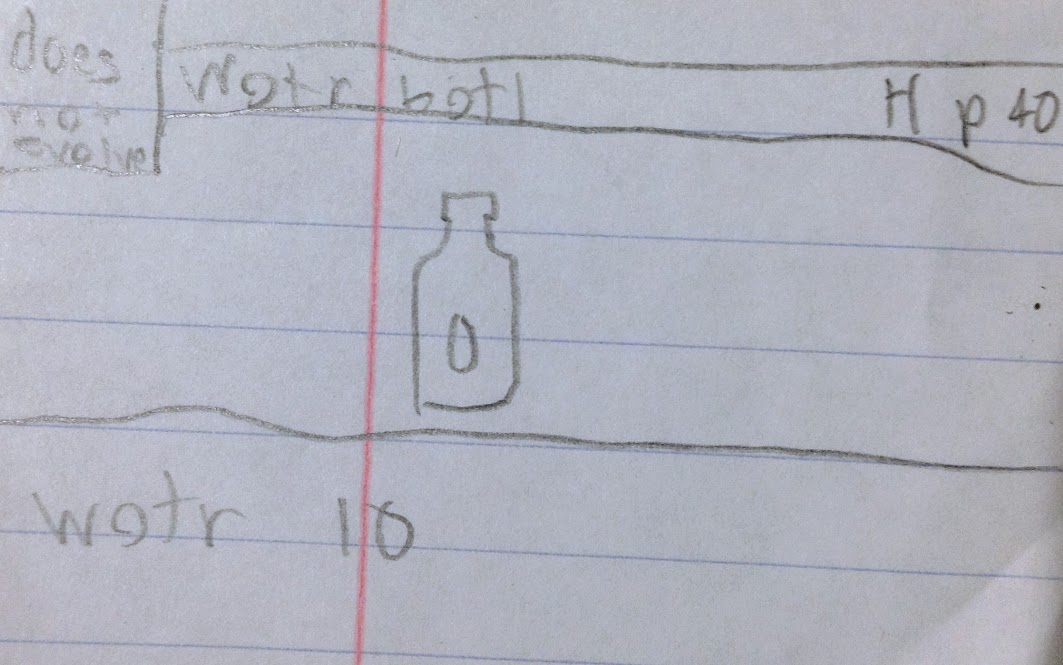 does
not
evolve
Wotr botl H p 40
0
wotr 10